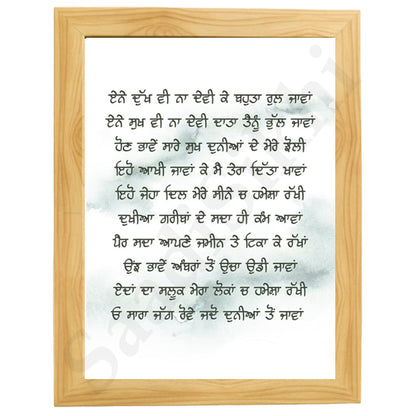 ਏਨੇ ਦੁੱਖ ਵੀ ਨਾ ਦੇਵੀ ਕੇ ਬਹੁਤਾ ਰੁਲ ਜਾਵਾਂ
ਏਨੇ ਸੁਖ ਵੀ ਨਾ ਦੇਵੀ ਦਾਤਾ ਤੈਨੂੰ ਭੁੱਲ ਜਾਵਾਂ
ਹੋਣ ਭਾਵੇਂ ਸਾਰੇ ਸੁਖ ਦੁਨੀਆਂ ਦੇ ਮੇਰੇ ਝੋਲੀ
ਇਹੋ ਆਖੀ ਜਾਵਾਂ ਕੇ ਮੈ ਤੇਰਾ ਦਿੱਤਾ ਖਾਵਾਂ
ਇਹੋ ਜੇਹਾ ਦਿਲ ਮੇਰੇ ਸੀਨੇ ਚ ਹਮੇਸ਼ਾ ਰੱਖੀ
ਦੁਖੀਆ ਗਰੀਬਾਂ ਦੇ ਸਦਾ ਹੀ ਕੰਮ ਆਵਾਂ
ਪੈਰ ਸਦਾ ਆਪਣੇ ਜਮੀਨ ਤੇ ਟਿਕਾ ਕੇ ਰੱਖਾਂ
ਉਂਝ ਭਾਵੇਂ ਅੰਬਰਾਂ ਤੋਂ ਉਚਾ ਉਡੀ ਜਾਵਾਂ
ਏਦਾਂ ਦਾ ਸਲੂਕ ਮੇਰਾ ਲੋਕਾਂ ਚ ਹਮੇਸ਼ਾ ਰੱਖੀ
ਓ ਸਾਰਾ ਜੱਗ ਰੋਵੇ ਜਦੋ ਦੁਨੀਆਂ ਤੋਂ ਜਾਵਾਂ